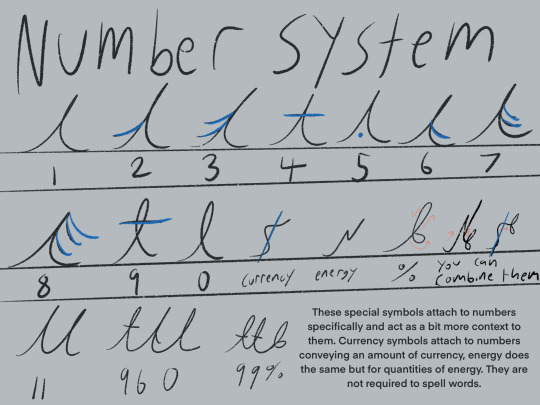 Number System
1 2 3 4 5 6 7
8 9 0 currency energy % you can combine them
11 96 0 99%
These special symbols attach to numbers
specifically and act as a bit more context to
them. Currency symbols attach to numbers
conveying an amount of currency, energy does
the same but for quantities of energy. They are
not required to spell words.